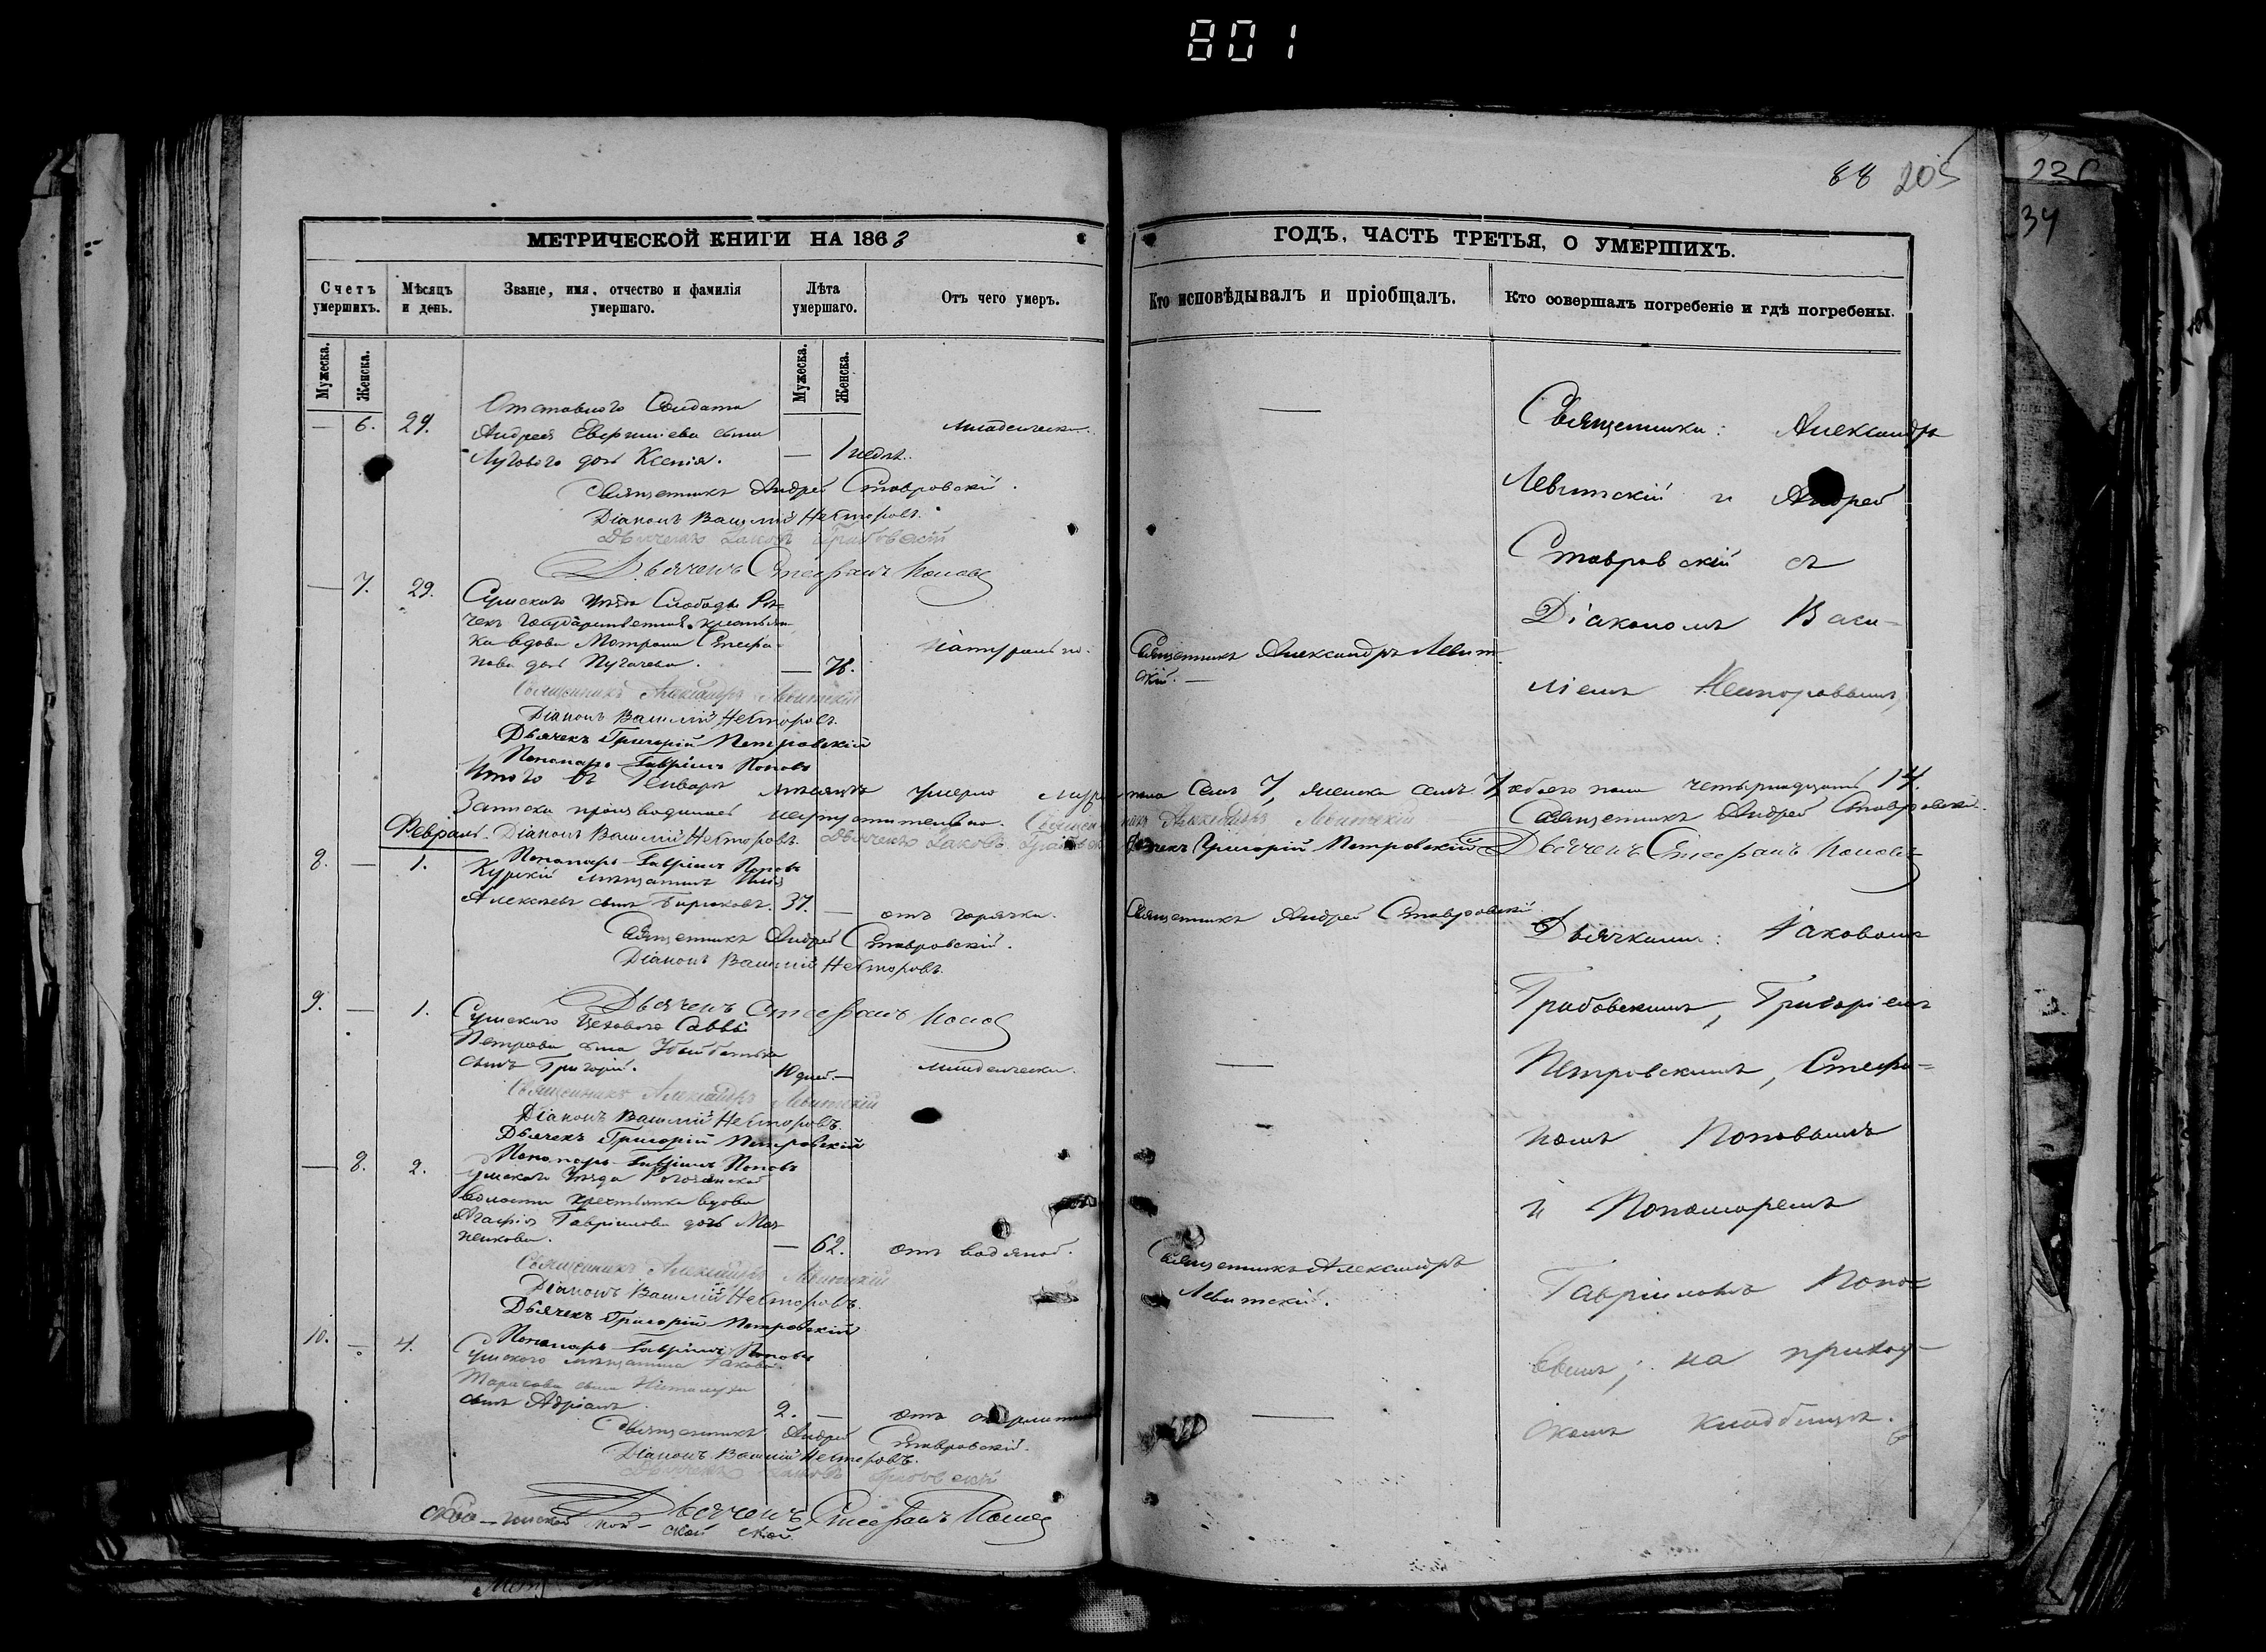 801
88 205
34
МЕТРИЧЕСКОЙ КНИГИ НА 1863
Счетъ умершихъ.
Мѣсяцъ и день.
Званіе, имя, отчество и фамилія умершаго.
Лѣта умершаго.
Отъ чего умеръ.
Мужеска.
Женска.
Мужеска.
Женска.
— 6. 29.
Отставного Солдата
Андрея сына
Лугового дочь Ксенія. — 1 недѣл.
младенческ.
Священникъ Андрей Ставровскій.
Діаконъ Василій Несторовъ.
Дьячекъ Іаковъ Грабовскій
Дьячекъ Стефанъ Поповъ
— 7. 29.
Сумскаго уѣзда Слободы Рѣ=
чекъ государственная крестьян
ка вдова Матрона Стефа-
нова дочь Пугачева. — 78.
натурально.
Священникъ Александръ Левитскій
Діаконъ Василій Несторовъ.
Дьячекъ Григорій Петровскій
Пономарь Гавріилъ Поповъ
Итого въ Январѣ мѣсяцѣ умерло
Записка производилась
Февраль. Діаконъ Василій Несторовъ. Дьячекъ Іаковъ Грабовскій
Пономарь Гавріилъ Поповъ
8. — 1.
Курскій мѣщанинъ
Алексѣевъ сынъ Бирюковъ. 37. —
отъ горячки.
Священникъ Андрей Ставровскій.
Діаконъ Василій Несторовъ.
Дьячекъ Стефанъ Поповъ
9. — 1.
Сумскаго Цеховаго Саввы
Петрова сына
сынъ Григорій. 10 дней. —
младенческ.
Священникъ Александръ Левитскій
Діаконъ Василій Несторовъ.
Дьячекъ Григорій Петровскій
Пономарь Гавріилъ Поповъ
— 8. 2.
Сумскаго Уѣзда
волости крестьянка вдова
Агафія Гавріилова дочь
— 62.
отъ водяной.
Священникъ Александръ Левитскій
Діаконъ Василій Несторовъ.
Дьячекъ Григорій Петровскій
Пономарь Гавріилъ Поповъ
10. — 4.
Сумского мѣщанина Іакова
Тарасова сына
сынъ Адріанъ. 2. —
отъ
Священникъ Андрей Ставровскій.
Діаконъ Василій Несторовъ.
Дьячекъ Іаковъ Грабовскій
Дьячекъ Стефанъ Поповъ
ГОДЪ, ЧАСТЬ ТРЕТЬЯ, О УМЕРШИХЪ.
Кто исповѣдывалъ и пріобщалъ.
Кто совершалъ погребеніе и гдѣ погребены.
—
Священникъ Александръ Левит
скій. —
пола семь 7, женска семь 7 обоего пола четырнадцать 14.
Александръ Левитскій Священникъ Андрей Ставровскій.
Дьячекъ Григорій Петровскій Дьячекъ Стефанъ Поповъ
Священникъ Андрей Ставровскій
—
Священникъ Александръ
Левитскій.
—
Священники: Александръ
Левитскій и Андрей
Ставровскій съ
Діакономъ Васи-
ліемъ Несторовымъ,
Дьячками: Іаковомъ
Грабовскимъ, Григоріемъ
Петровскимъ, Стефа=
номъ Поповымъ
и Пономаремъ
Гавріиломъ Попо=
вымъ; на приход-
скомъ кладбищѣ.